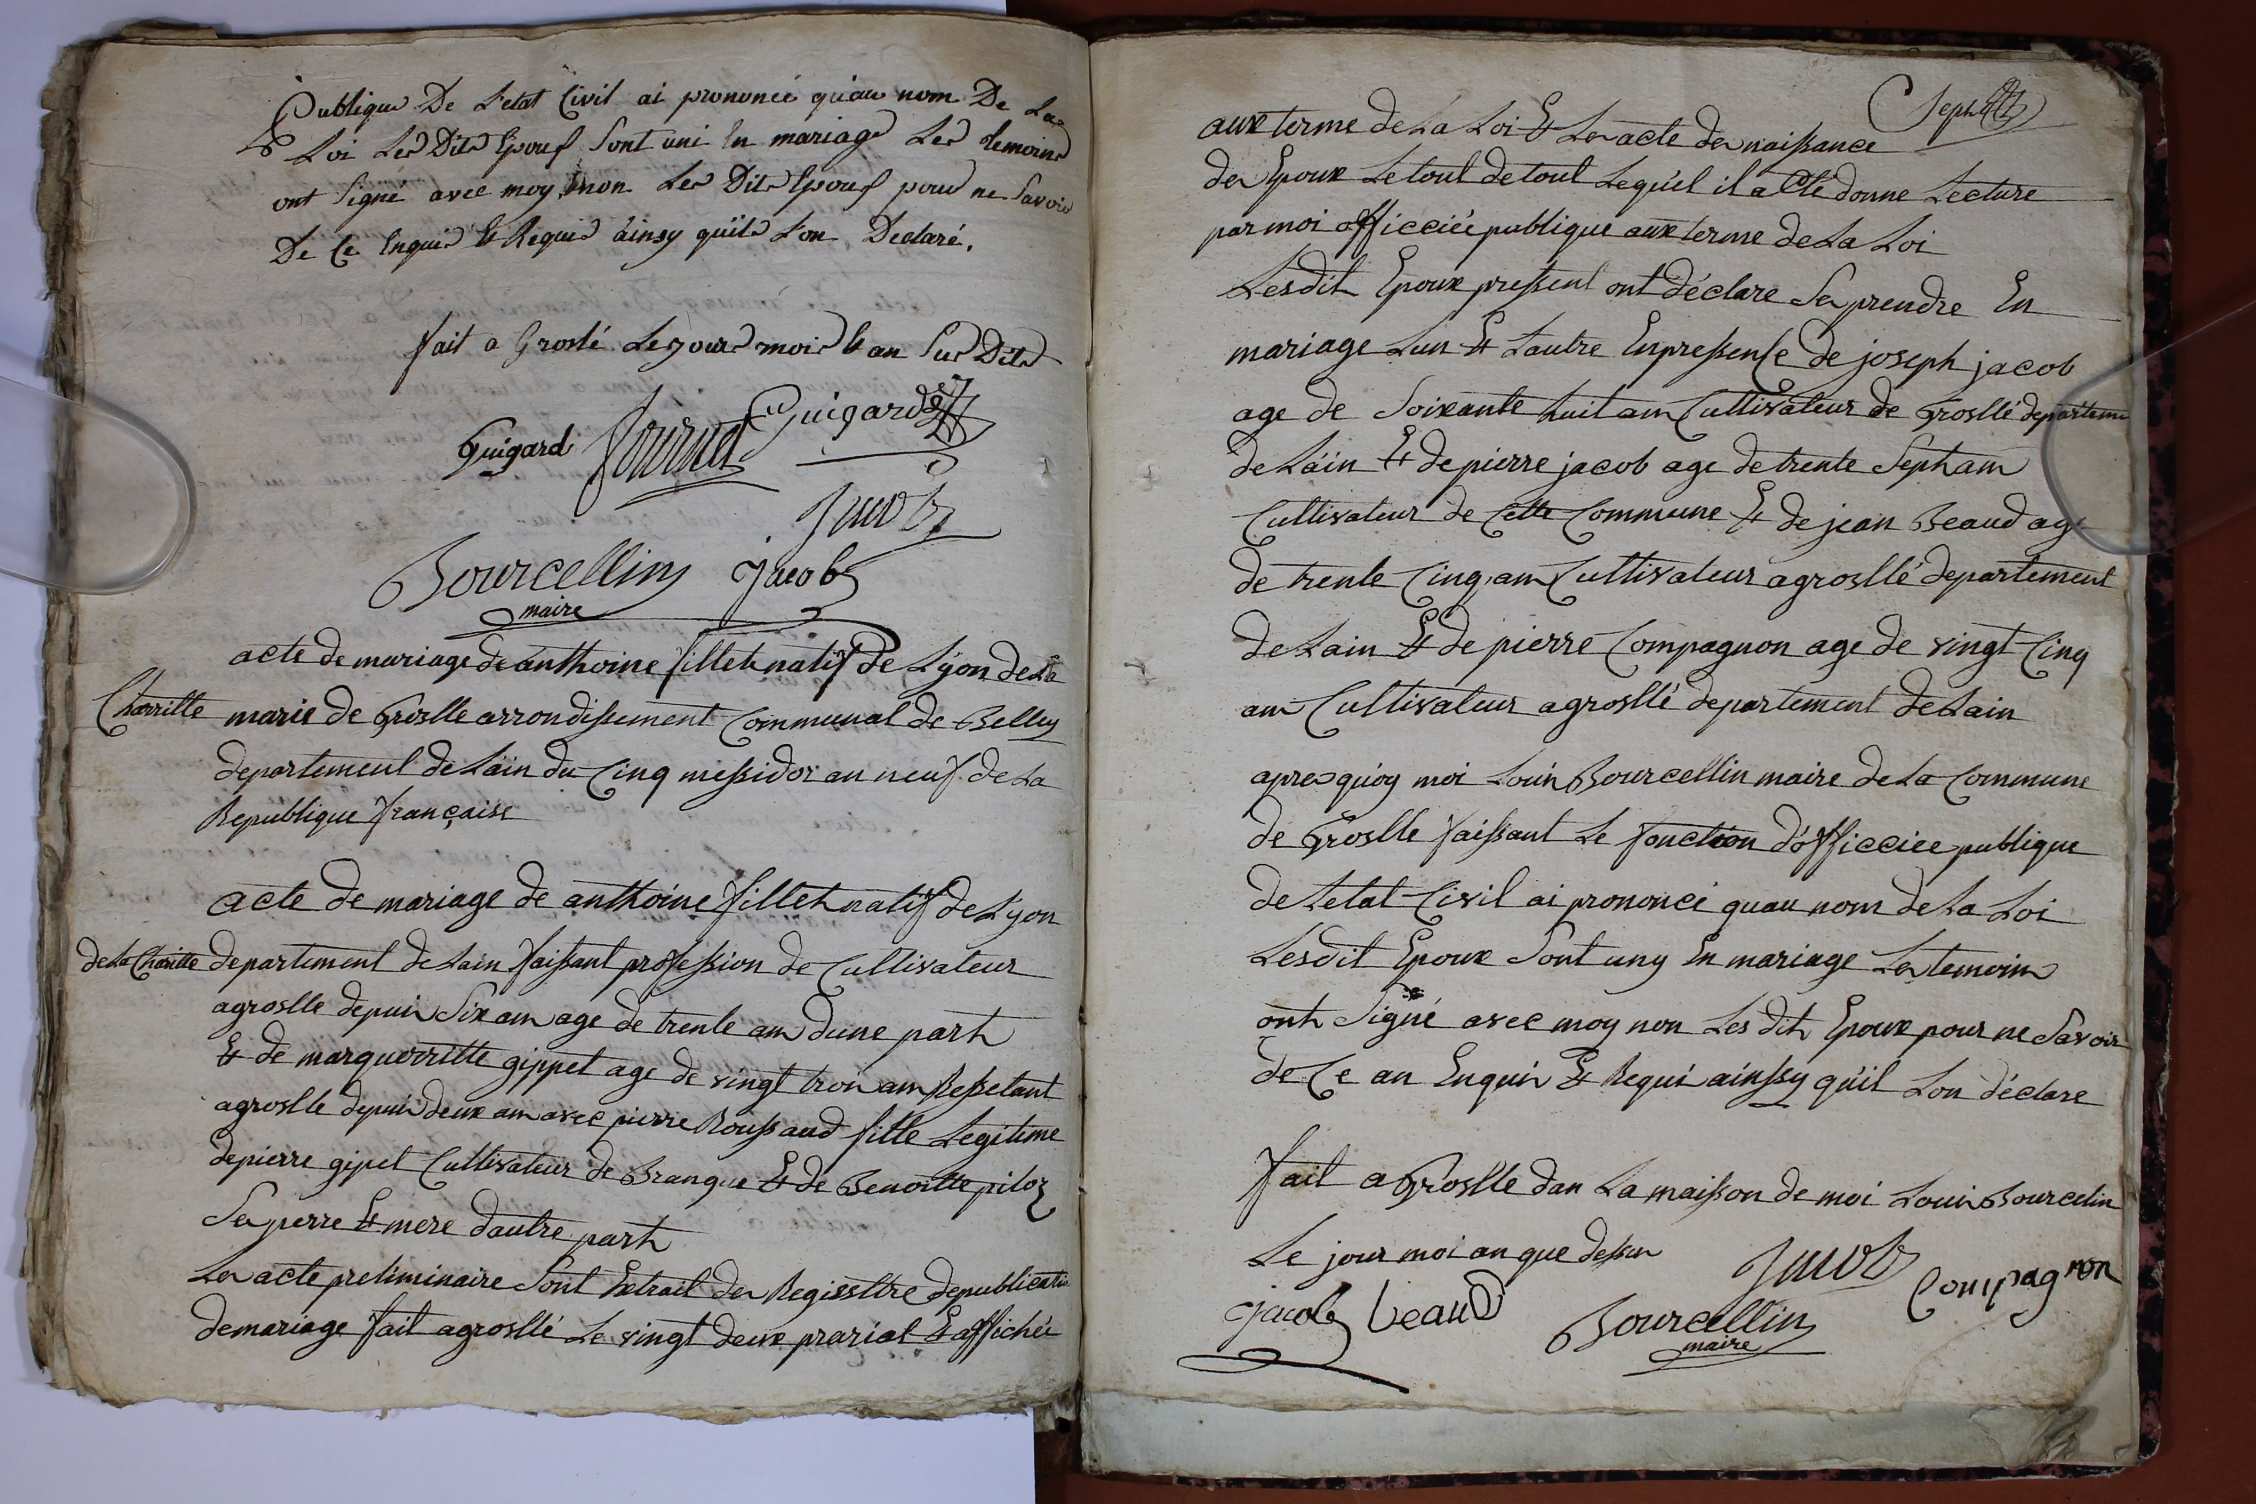 Publique De L'etat Civil ai prononcé qu'au nom De La
Loi Les Dits Epous Sont uni En mariage Les temoins
ont Signé avec moy non Les Dits Epous pour ne Savoir
De Ce Enquis & Requis ainsy quils L'on Declaré.
fait a Groslé Les jours mois & an Sus Dits
Guigard fournet Guigard
Jacob
Bourcellin Jacob
maire
acte de mariage de anthoine fillet natif de Lyon de La
Charritte marie de Groslle arrondissement Communal de Belley
departement de Lain du Cinq messidor an neuf de La
Republique française
acte de mariage de anthoine fillet natif de Lyon
de La Charitte departement de Lain faissant professsion de Cultivateur
agroslle depuis Six an age de trente an dune part
& de marguerritte gippet age de vingt trois an Ressetant
agroslle depuis deux an avec pierre Roussaud fille Legitime
de pierre gipet Cultivateur de Brangue & de Benoitte piloz
Ses perre & mere d'autre part
Les acte preliminaire Sont Extrait des Regissttre de publication
de mariage fait agroslé Le vingt deux prarial & affichée
Sept
aux terme de La Loi & Les acte de naissance
des Epoux Le tout de tout Lequel il a Eté donne Lecture
par moi officciée publique aux terme de La Loi
Lesdit Epoux pressent ont déclare Se prendre En
mariage Lun & Lautre Enpressense de joseph jacob
age de Soixante huit an Cultivateur de Groslle departeme
de Lain & de pierre jacob age de trente Sept an
Cultivateur de Cette Commune & de jean Beaud age
de trente Cinq an Cultivateur agrosllé departement
de Lain & de pierre Compagnon age de vingt Cinq
an Cultivateur agrosllé departement de Lain
apres quoy moi Louis Bourcellin maire de La Commune
de Groslle faissant Le fonction d'officciee publique
de Letat Civil ai prononcé quau nom de La Loi
Lesdit Epoux Sont uny En mariage Les temoins
ont Signé avec moy non Les dit Epoux pour ne Savoir
de Ce an Enquis & Requi ainssy quil Lon déclare
fait a Groslle dan La maisson de moi Louis Bourcelin
Le jour moi an que dessus
Jacob Compagnon
Jacob beaud Bourcellin
maire